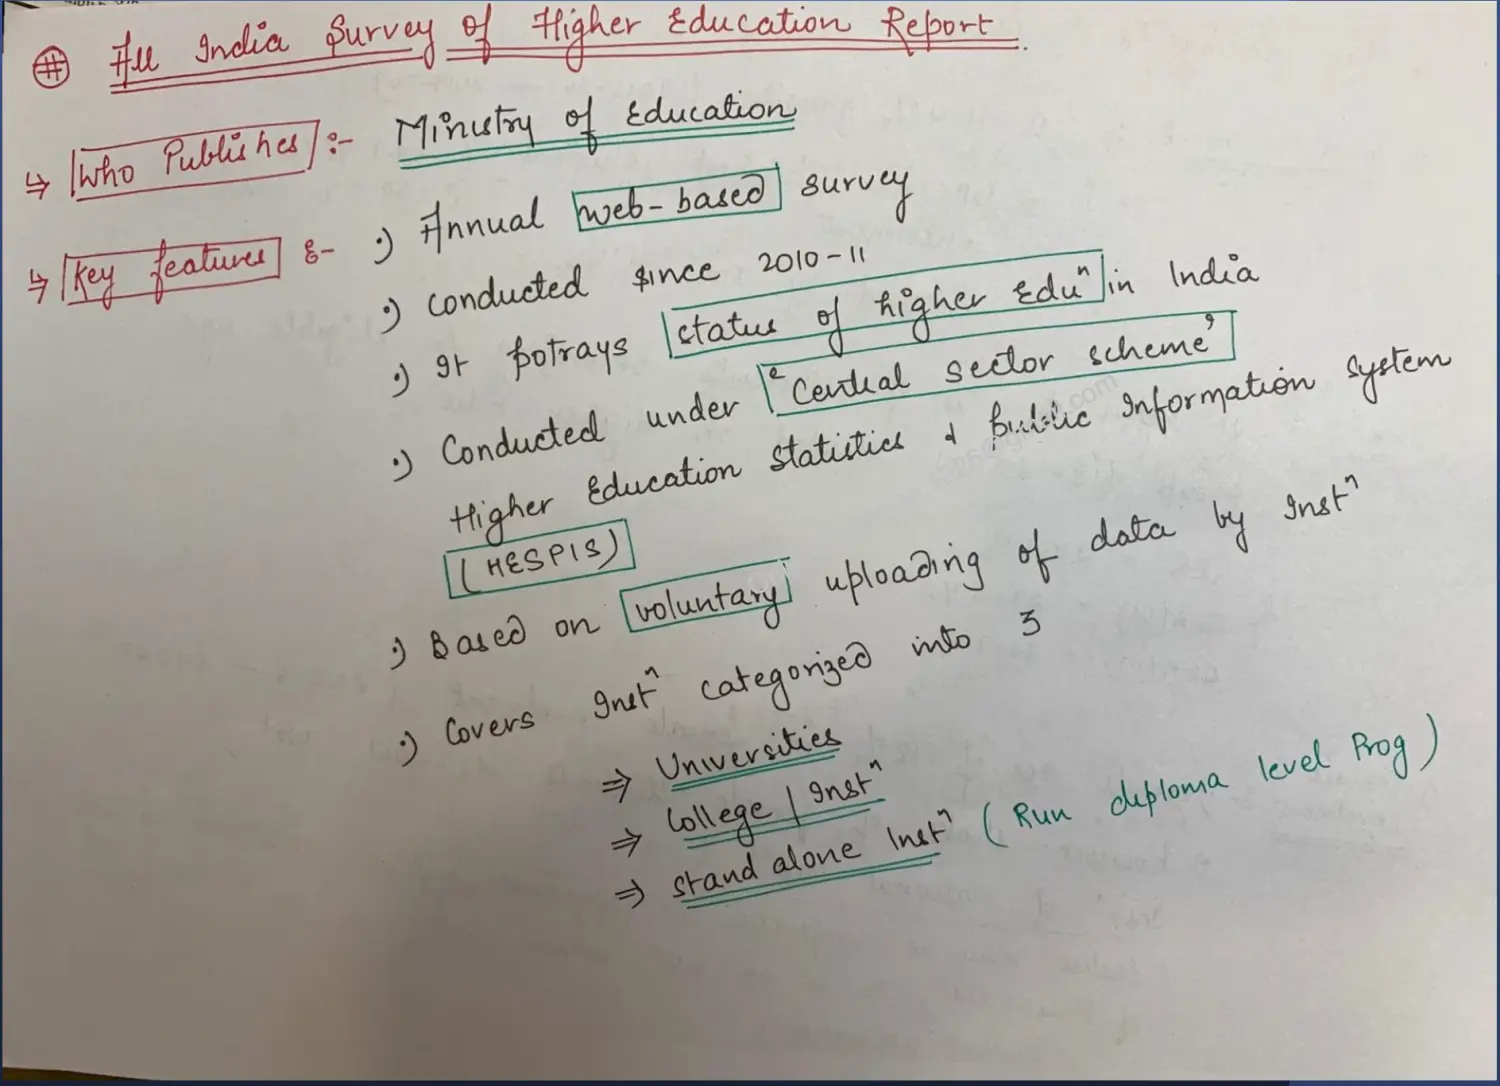 # All India Survey of Higher Education Report.
↳ Who Publishes :- Ministry of Education
↳ Key features :- •) Annual web-based survey
•) Conducted since 2010-11
•) It potrays status of higher Eduⁿ in India
•) Conducted under 'Central sector scheme'
Higher Education Statistics & Public Information System
(HESPIS)
•) Based on voluntary uploading of data by Instⁿ
•) Covers Instⁿ categorized into 3
⇒ Universities
⇒ College / Instⁿ
⇒ Stand alone Instⁿ (Run diploma level Prog)